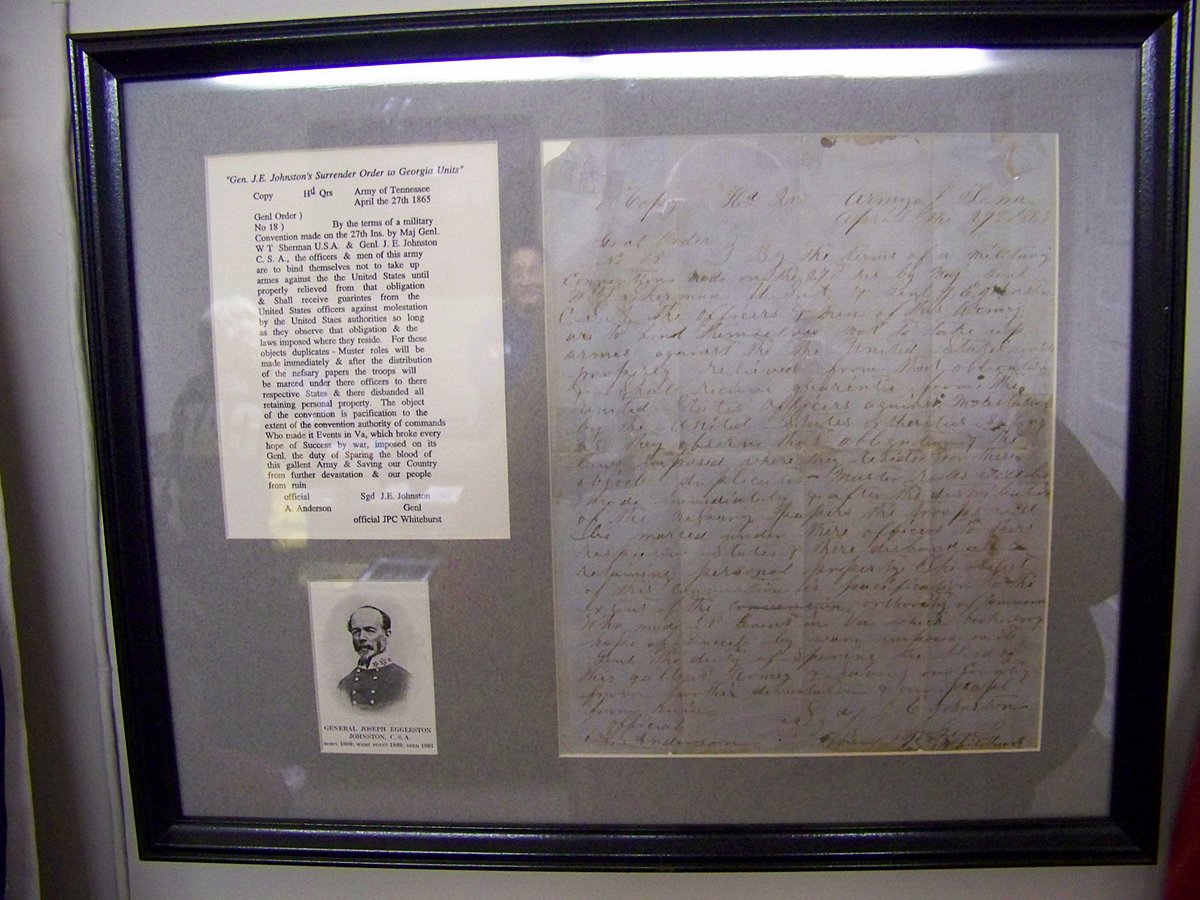 "Gen. J.E. Johnston's Surrender Order to Georgia Units"
Copy Hd Qrs Army of Tennessee
April the 27th 1865
Genl Order )
No 18 ) By the terms of a military
Convention made on the 27th Ins. by Maj Genl.
W T Sherman U.S.A. & Genl. J. E. Johnston
C. S. A., the officers & men of this army
are to bind themselves not to take up
armes against the the United States until
properly relieved from that obligation
& Shall receive guarintes from the
United States officers against molestation
by the United Staes authorities so long
as they observe that obligation & the
laws imposed where they reside. For these
objects duplicates - Muster roles will be
made immediately & after the distribution
of the nefsary papers the troops will
be marced under there officers to there
respective States & there disbanded all
retaining personal property. The object
of the convention is pacification to the
extent of the convention authority of commands
Who made it Events in Va, which broke every
hope of Success by war, imposed on its
Genl. the duty of Sparing the blood of
this gallent Army & Saving our Country
from further devastation & our people
from ruin
official Sgd J.E. Johnston
A. Anderson Genl
official JPC Whitehurst
GENERAL JOSEPH EGGLESTON
JOHNSTON, C.S.A.
BORN 1809, WEST POINT 1829, DIED 1891
Copy Hd Qrs Army of Tenn
April the 27th 1865
Genl Order
No 18 By the terms of a military
Convention made on the 27 Ins by Maj Gen
C. S. A. the officers & men of this Army
are to bind themselves not to take up
armes against the the United States
properly relieved from that obligation
& Shall receive guarentes from the
United States officers against molestation
by the United States
as they observe that obligation & the
laws imposed where they reside For these
objects duplicates - Muster
made immediately & after the distribution
of the nefsary papers the troops will
be marced under there officers to there
respective States & there disband all
retaining personal property The object
of this Convention is pacification to the
extent of the authority of
Who made it Events in Va which broke every
hope of by war imposed on its
Genl the duty of Sparing the blood of
this gallent Army & Saving our Country
from further devastation & our people
from ruin J E Johnston
official
Anderson